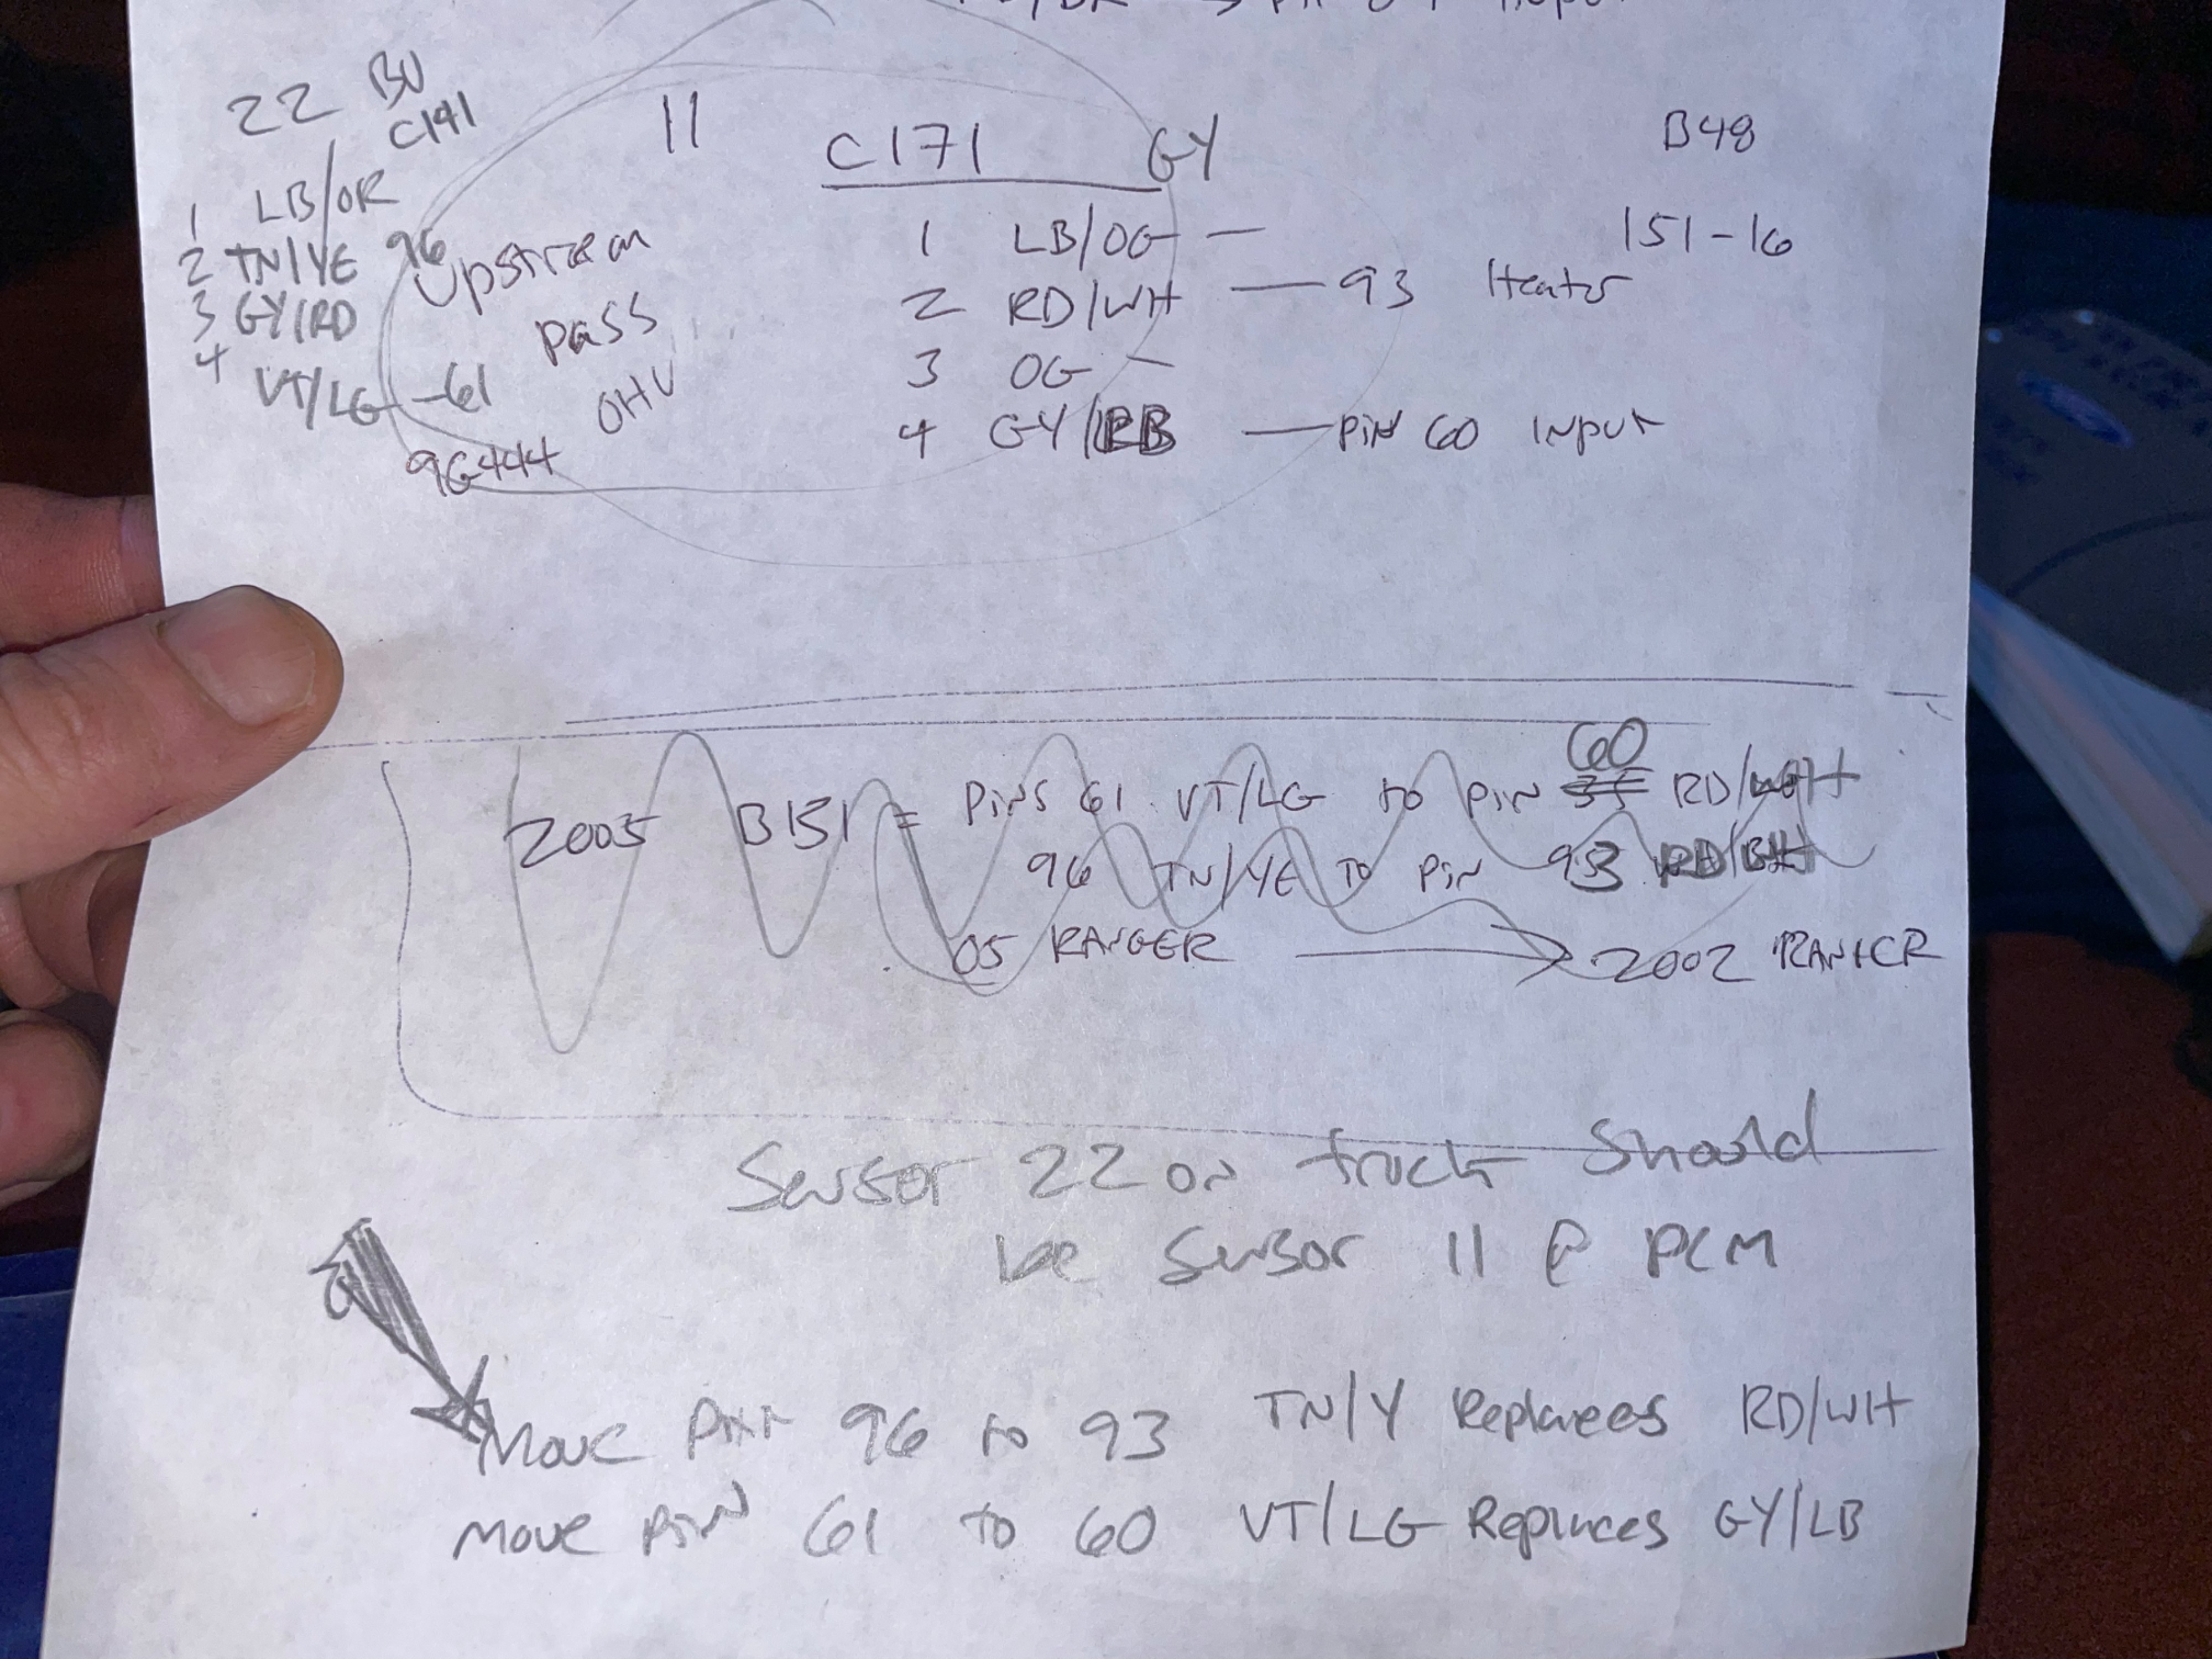 22 BU
C141
1 LB/OR
2 TN/YE 96
3 GY/RD
4 VT/LG -61
Upstream
pass
OHV
9G444
11 C171 GY B48
1 LB/OG — 151-16
2 RD/WH — 93 Heater
3 OG —
4 GY/LB — PiN 60 INPUT
60
2005 B151 = PiNS 61 VT/LG to PiN 35 RD/WH
96 TN/YE TO PiN 93
05 RANGER → 2002 RANGER
Sensor 22 on truck Should
be Sensor 11 @ PCM
Move Pin 96 to 93 TN/Y Replaces RD/WH
Move PiN 61 to 60 VT/LG Replaces GY/LB